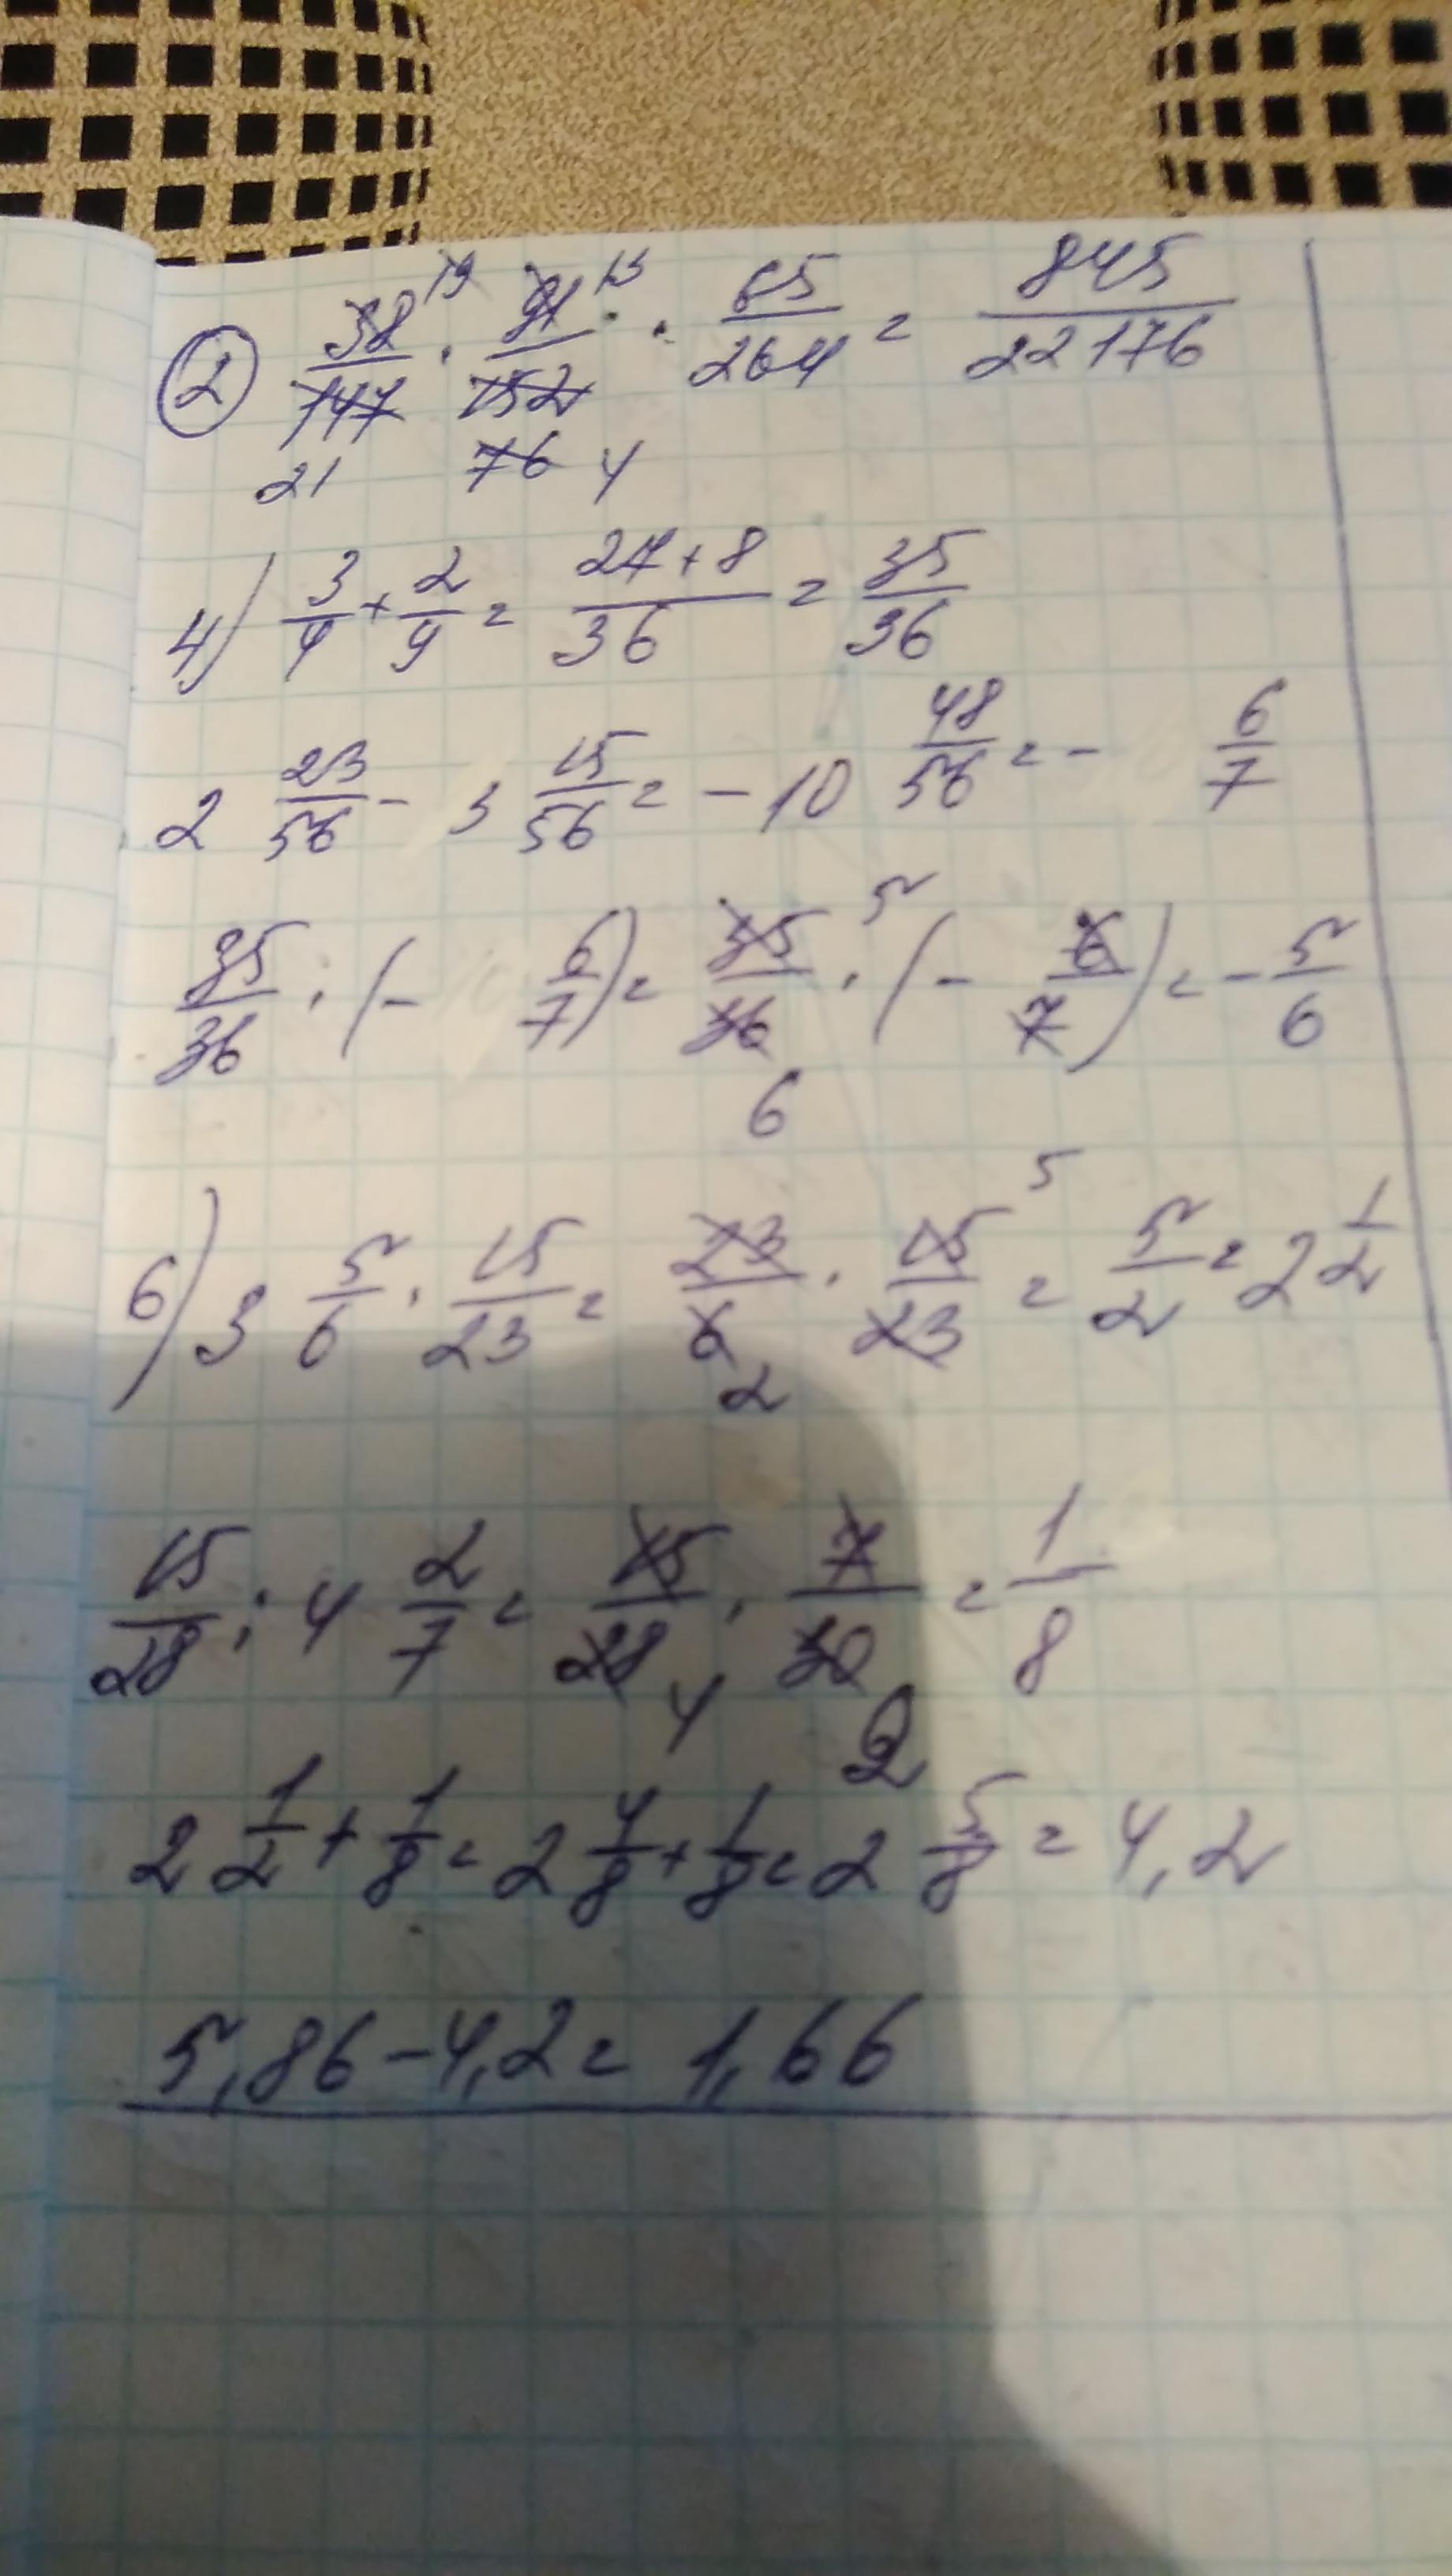 ② 38/147 19 · 91/152 13 · 65/264 = 845/22176
21 76 4
4) 3/4 + 2/9 = 27+8/36 = 35/36
2 23/56 - 3 15/56 = - 10 48/56 = - 6/7
35/36 · (- 6/7) = 35/36 · 5 (- 6/7) = - 5/6
6
6) 3 5/6 · 15/23 = 23/6 · 15/23 5 = 5/2 = 2 1/2
2
15/28 : 4 2/7 = 15/28 · 7/30 = 1/8
4 2
2 1/2 + 1/8 = 2 4/8 + 1/8 = 2 5/8 = 4,2
5,86 - 4,2 = 1,66